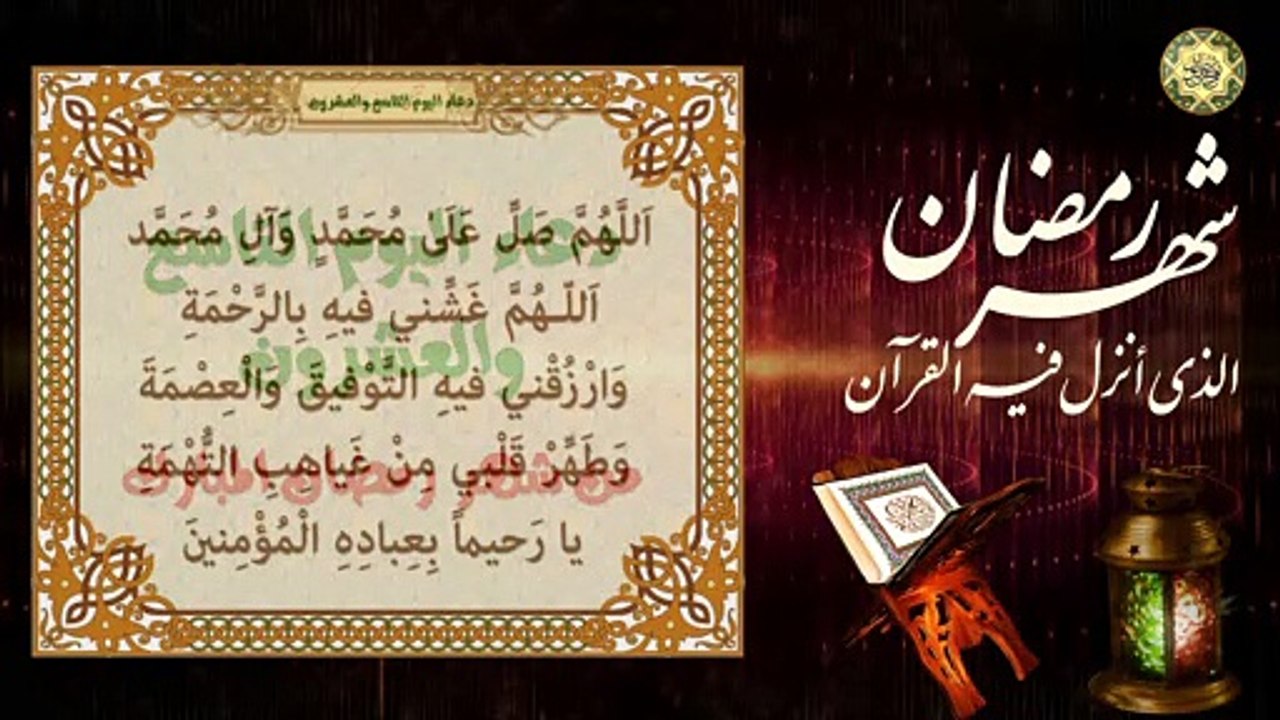 دعاء اليوم التاسع والعشرون
اَللَّهُمَّ صَلِّ عَلَىٰ مُحَمَّدٍ وَآلِ مُحَمَّد
اَللّـهُمَّ غَشِّني فيهِ بِالرَّحْمَةِ
وَارْزُقْني فيهِ التَّوْفيقَ وَالْعِصْمَةَ
وَطَهِّرْ قَلْبي مِنْ غَياهِبِ التُّهْمَةِ
يا رَحيماً بِعِبادِهِ الْمُؤْمِنينَ
دعاء اليوم التاسع
والعشرون
من شهر رمضان المبارك
شهر رمضان
الذى أنزل فيه القرآن